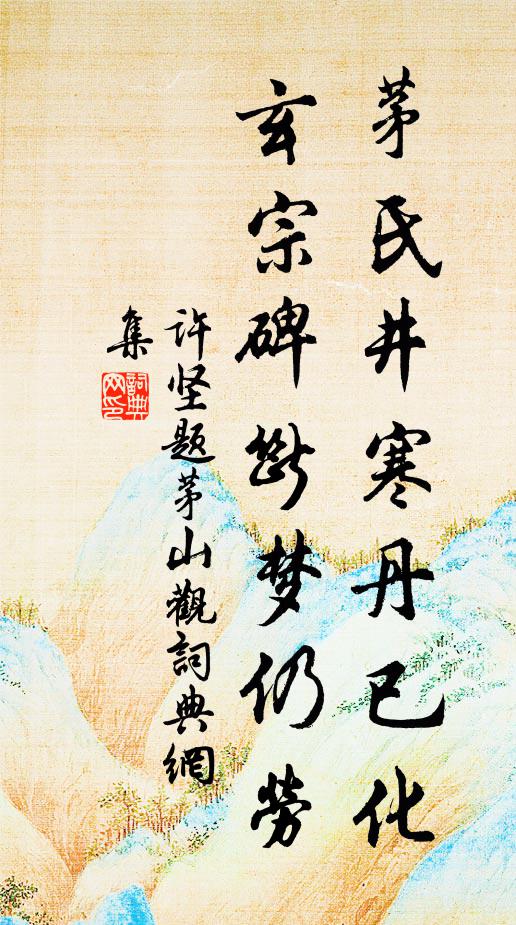 茅氏井寒丹已化
玄宗碑断梦仍勞
许坚题茅山觀詞典網
集
詞典
网印